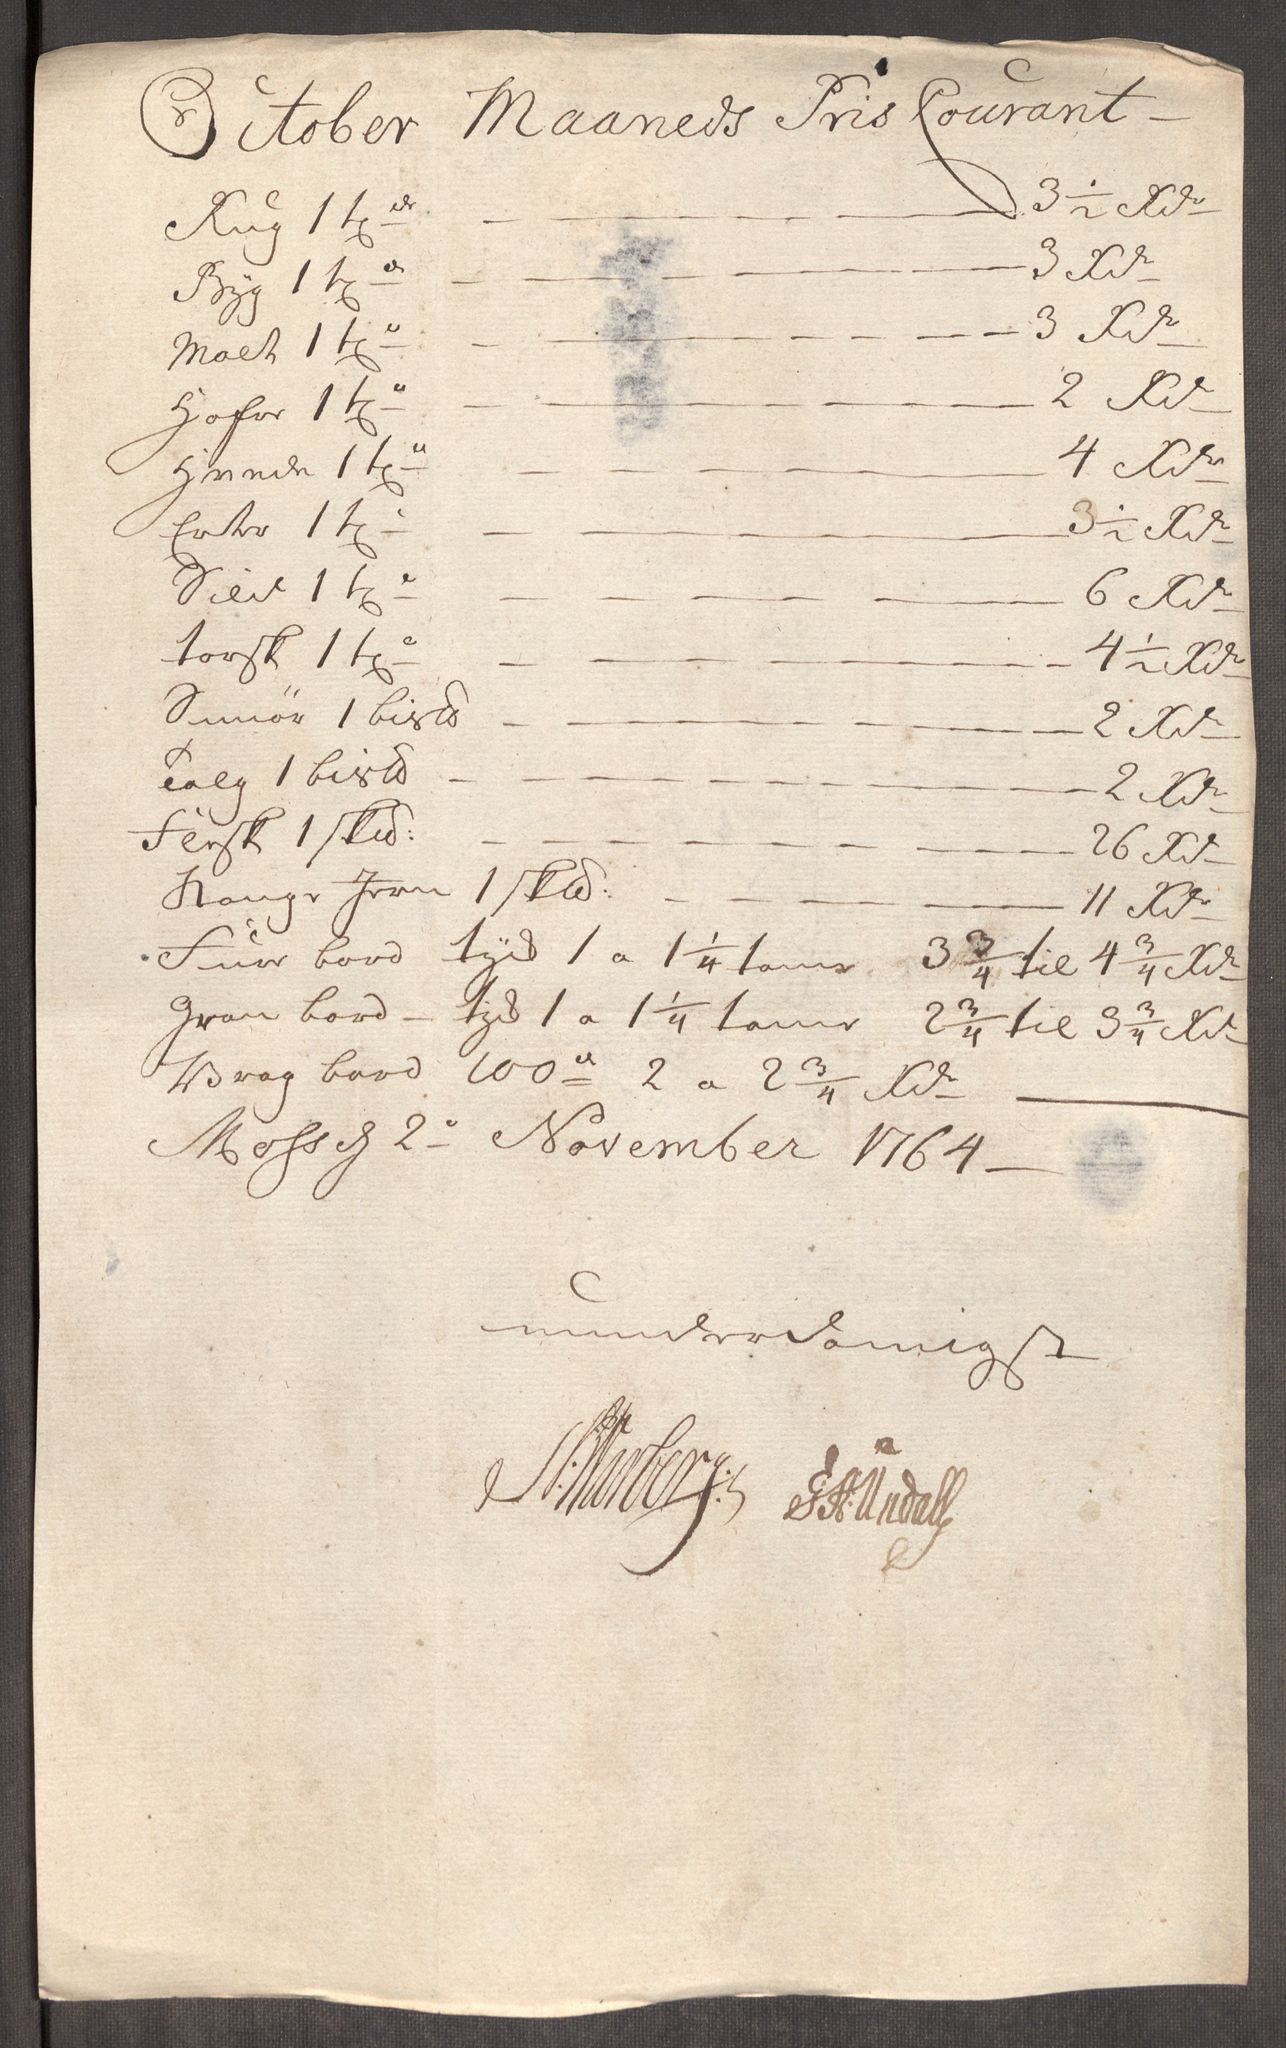 October Maaneds Pris Courant –
Rug 1 tde – – – – 3 1/2 Rdr
Byg 1 td – – – – 3 Rdr
Malt 1 td – – – – 3 Rdr
Hafre 1 td – – – – 2 Rdr
Hvede 1 td – – – – 4 Rdr
Erter 1 td – – – – 3 1/2 Rdr
Sild 1 td – – – – 6 Rdr
torsk 1 td – – – – 4 1/2 Rdr
Smör 1 bis℔ – – – – 2 Rdr
Talg 1 bis℔ – – – – 2 Rdr
Flesk 1 sk℔: – – – – 26 Rdr
Stange Jern 1 sk℔: – – – – 11 Rdr
Furr bord tyld 1 a 1 1/4 tome 3 3/4 til 4 3/4 Rdr
Gran bord – tyld 1 a 1 1/4 tome 2 3/4 til 3 3/4 Rdr
Wrag bord 100de 2 a 2 3/4 Rdr
Moss d 2e November 1764 –
underdanigst
G A: Undall